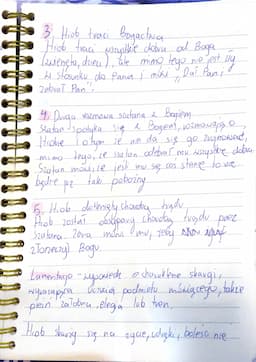 3. Hiob traci bogactwa
Hiob traci wszystkie dobra od Boga
(zwierzęta, dzieci), ale mimo tego nie jest zły
w stosunku do Pana i mówi "Dał Pan i
zabrał Pan".
4. Druga rozmowa szatana z Bogiem
Szatan spotyka się z Bogiem, rozmawiają o
Hiobie i o tym że on da się go
mimo tego, że szatan odebrał mu wszystkie dobra.
Szatan mówi, że jest mu się coś stanie to nie
będzie już tak pobożny
5. Hiob dotknięty chorobą trądu
Hiob został dotknięty chorobą trądu przez
szatana. Żona mówi mu, żeby
złorzeczył Bogu.
Lamentacja - wypowiedź o charakterze skargi,
wyrażająca uczucia podmiotu mówiącego, także
pieśń żałobna, elegia lub tren.
Hiob skarży się na życie, udręki, boleści nie